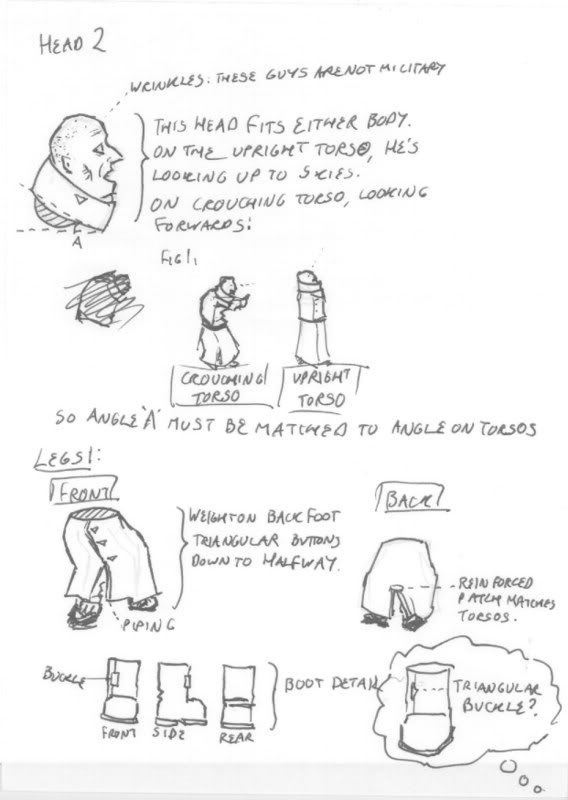 HEAD 2
WRINKLES: THESE GUYS ARE NOT MILITARY
THIS HEAD FITS EITHER BODY.
ON THE UPRIGHT TORSO, HE'S
LOOKING UP TO SKIES.
ON CROUCHING TORSO, LOOKING
FORWARDS:
A
FIG 1,
CROUCHING
TORSO
UPRIGHT
TORSO
SO ANGLE 'A' MUST BE MATCHED TO ANGLE ON TORSOS
LEGS 1:
FRONT
BACK
WEIGHT ON BACK FOOT
TRIANGULAR BUTTONS
DOWN TO HALFWAY.
PIPING
REINFORCED
PATCH MATCHES
TORSOS.
BUCKLE
FRONT
SIDE
REAR
BOOT DETAIL
TRIANGULAR
BUCKLE?